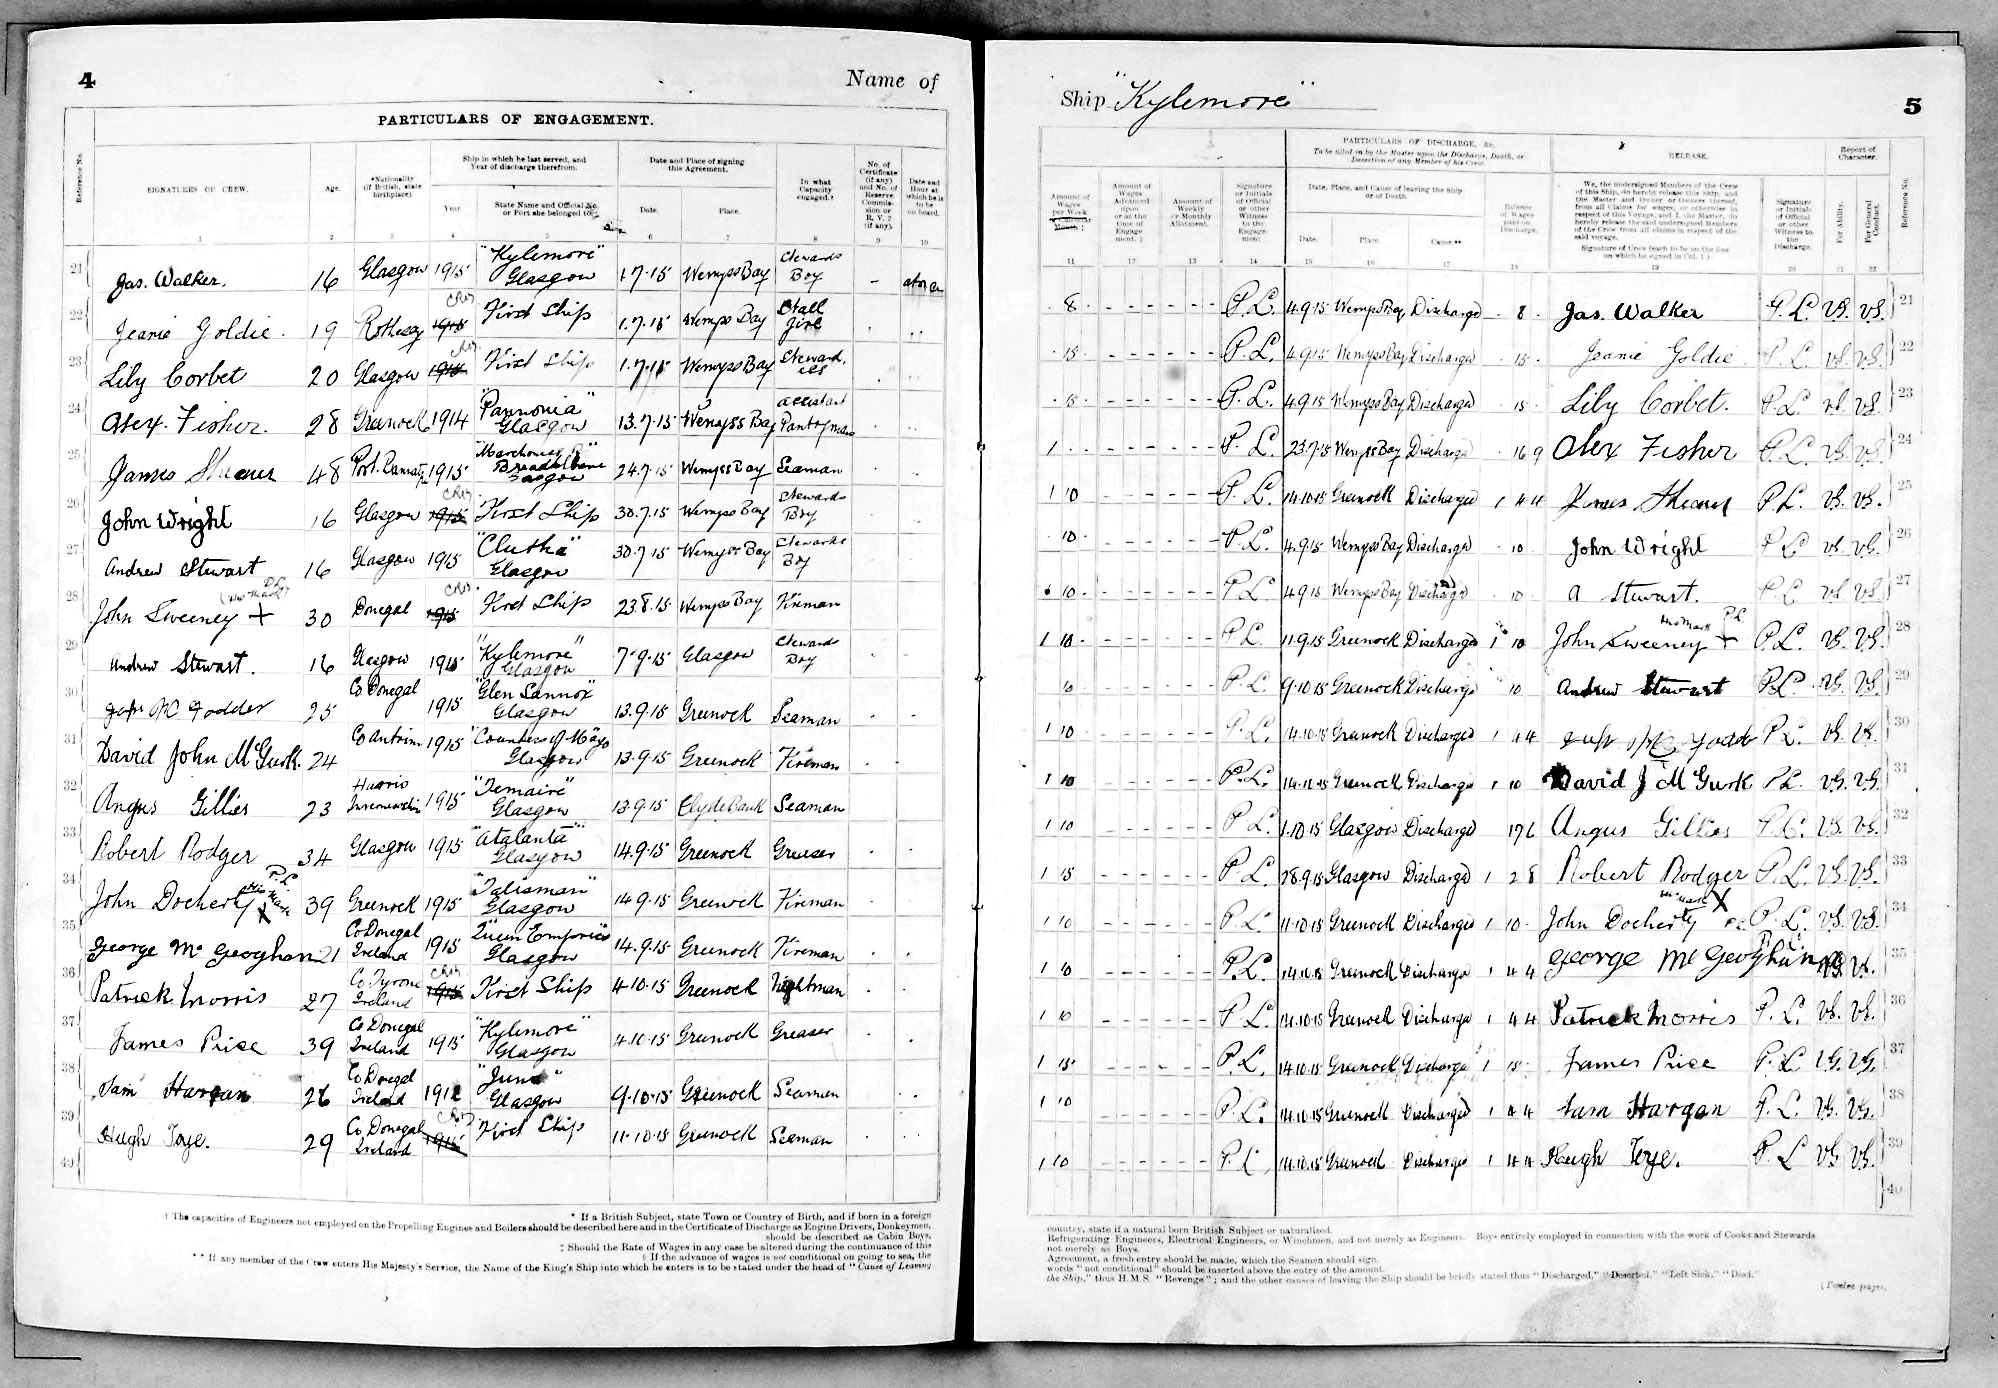 4
Name of
PARTICULARS OF ENGAGEMENT.
Reference No.
SIGNATURES OF CREW.
Age.
*Nationality (if British, state birthplace).
Ship in which he last served, and Year of discharge therefrom.
Year.
State Name and Official No. or Port she belonged to.
Date and Place of signing this Agreement.
Date.
Place.
In what Capacity engaged.†
No. of Certificate (if any) and No. of Reserve Commission or R. V. 2 (if any).
Date and Hour at which he is to be on board.
1 2 3 4 5 6 7 8 9 10
21 Jas. Walker. 16 Glasgow 1915 "Kylemore" Glasgow 1.7.15 Wemyss Bay Stewards Boy - at once
22 Jeanie Goldie. 19 Rothesay 1915 First Ship 1.7.15 Wemyss Bay Stall girl
23 Lily Corbet 20 Glasgow 1915 First Ship 1.7.15 Wemyss Bay Stewardess
24 Alex. Fisher. 28 Greenock 1914 "Pannonia" Glasgow 13.7.15 Wemyss Bay assistant Pantryman
25 James Shearer 48 Port Bannatyne 1915 "Marchioness of Breadalbane" Glasgow 24.7.15 Wemyss Bay Seaman
26 John Wright 16 Glasgow 1915 First Ship 30.7.15 Wemyss Bay Stewards Boy
27 Andrew Stewart 16 Glasgow 1915 "Clutha" Glasgow 30.7.15 Wemyss Bay Stewards Boy
28 John Sweeney + (His Mark) P.L. 30 Donegal 1915 First Ship 23.8.15 Wemyss Bay Fireman
29 Andrew Stewart. 16 Glasgow 1915 "Kylemore" Glasgow 7.9.15 Glasgow Stewards Boy
30 Mc Fadder 25 Co Donegal 1915 "Glen Sannox" Glasgow 13.9.15 Greenock Seaman
31 David John McGurk. 24 Co Antrim 1915 "Countess of Mayo" Glasgow 13.9.15 Greenock Fireman
32 Angus Gillies 23 Harris 1915 "Temaire" Glasgow 13.9.15 Clydebank Seaman
33 Robert Rodger 34 Glasgow 1915 "Atalanta" Glasgow 14.9.15 Greenock Greaser
34 John Docherty His Mark X P.L. 39 Greenock 1915 "Talisman" Glasgow 14.9.15 Greenock Fireman
35 George McGeoghan 21 Co Donegal Ireland 1915 "Queen Empress" Glasgow 14.9.15 Greenock Fireman
36 Patrick Morris 27 Co Tyrone Ireland 1915 First Ship 4.10.15 Greenock Nightman
37 James Price 39 Co Donegal Ireland 1915 "Kylemore" Glasgow 4.10.15 Greenock Greaser
38 Sam Hargan 26 Co Donegal Ireland 1912 "Juno" Glasgow 9.10.15 Greenock Seaman
39 Hugh Toye. 29 Co Donegal Ireland 1915 First Ship 11.10.15 Greenock Seaman
40
* If a British Subject, state Town or Country of Birth, and if born in a foreign
† The capacities of Engineers not employed on the Propelling Engines and Boilers should be described here and in the Certificate of Discharge as Engine Drivers, Donkeymen,
should be described as Cabin Boys,
‡ Should the Rate of Wages in any case be altered during the continuance of this
§ If the advance of wages is not conditional on going to sea, the
** If any member of the Crew enters His Majesty's Service, the Name of the King's Ship into which he enters is to be stated under the head of "Cause of Leaving
Ship "Kylemore"
5
Amount of Wages per Week
Amount of Wages Advanced upon or at the time of Engagement. ‡
Amount of Weekly or Monthly Allotment.
Signature or Initials of Official or other Witness to the Engagement
PARTICULARS OF DISCHARGE, &c.
To be filled in by the Master upon the Discharge, Death, or Desertion of any Member of his Crew.
Date, Place, and Cause of leaving the Ship or of Death.
Date.
Place.
Cause.**
Balance of Wages paid on Discharge.
RELEASE.
We, the undersigned Members of the Crew of this Ship, do hereby release this Ship, and the Master and Owner or Owners thereof, from all Claims for wages, or otherwise in respect of this Voyage, and I, the Master, do hereby release the said undersigned Members of the Crew from all claims in respect of the said voyage.
Signature of Crew (each to be on the line on which he signed in Col. 1.)
Signature or Initials of Official or other Witness to the Discharge.
Report of Character.
For Ability.
For General Conduct.
Reference No.
11 12 13 14 15 16 17 18 19 20 21 22
8 P.L. 4.9.15 Wemyss Bay Discharged 8 Jas. Walker P.L. VG. VG. 21
15 P.L. 4.9.15 Wemyss Bay Discharged 15 Jeanie Goldie P.L. VG. VG. 22
15 P.L. 4.9.15 Wemyss Bay Discharged 15 Lily Corbet. P.L. VG. VG. 23
1 P.L. 23.7.15 Wemyss Bay Discharged 16 9 Alex Fisher P.L. VG. VG. 24
1 10 P.L. 14.10.15 Greenock Discharged 1 4 4 James Shearer P.L. VG. VG. 25
10 P.L. 4.9.15 Wemyss Bay Discharged 10 John Wright P.L. VG. VG. 26
10 P.L. 4.9.15 Wemyss Bay Discharged 10 A Stewart. P.L. VG. VG. 27
1 10 P.L. 11.9.15 Greenock Discharged 1 10 John Sweeney + His Mark P.L. P.L. VG. VG. 28
10 P.L. 9.10.15 Greenock Discharged 10 Andrew Stewart P.L. VG. VG. 29
1 10 P.L. 14.10.15 Greenock Discharged 1 4 4 P.L. VG. VG. 30
1 10 P.L. 14.10.15 Greenock Discharged 1 10 David J McGurk P.L. VG. VG. 31
1 10 P.L. 1.10.15 Glasgow Discharged 17 6 Angus Gillies P.L. VG. VG. 32
1 15 P.L. 28.9.15 Glasgow Discharged 1 2 8 Robert Rodger P.L. VG. VG. 33
1 10 P.L. 11.10.15 Greenock Discharged 1 10 John Docherty His Mark X P.L. P.L. VG. VG. 34
1 10 P.L. 14.10.15 Greenock Discharged 1 4 4 George McGeoghan P.L. VG. VG. 35
1 10 P.L. 14.10.15 Greenock Discharged 1 4 4 Patrick Morris P.L. VG. VG. 36
1 15 P.L. 14.10.15 Greenock Discharged 1 15 James Price P.L. VG. VG. 37
1 10 P.L. 14.10.15 Greenock Discharged 1 4 4 Sam Hargan P.L. VG. VG. 38
1 10 P.L. 14.10.15 Greenock Discharged 1 4 4 Hugh Toye. P.L. VG. VG. 39
40
country, state if a natural born British Subject or naturalized.
Refrigerating Engineers, Electrical Engineers, or Winchmen, and not merely as Engineers. Boys entirely employed in connection with the work of Cooks and Stewards
not merely as Boys.
Agreement, a fresh entry should be made, which the Seamen should sign.
words "not conditional" should be inserted above the entry of the amount.
the Ship," thus H.M.S. "Revenge"; and the other causes of leaving the Ship should be briefly stated thus "Discharged," "Deserted," "Left Sick," "Died."
[Twelve pages.